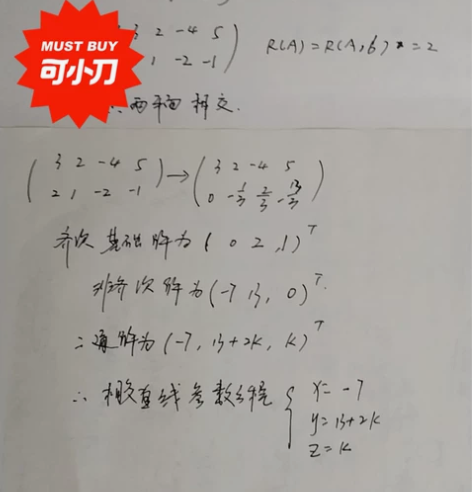 MUST BUY
可小刀
3 2 -4 5
1 -2 -1
R(A)=R(A,b)=2
两平面相交.
( 3 2 -4 5
2 1 -2 -1 ) → ( 3 2 -4 5
0 -1/3 2/3 -13/3 )
齐次基础解为 ( 0 2, 1 )ᵀ
非齐次解为 (-7 13, 0)ᵀ
∴通解为 (-7, 13+2k, k)ᵀ
∴相交直线参数方程 { x=-7
y=13+2k
z=k